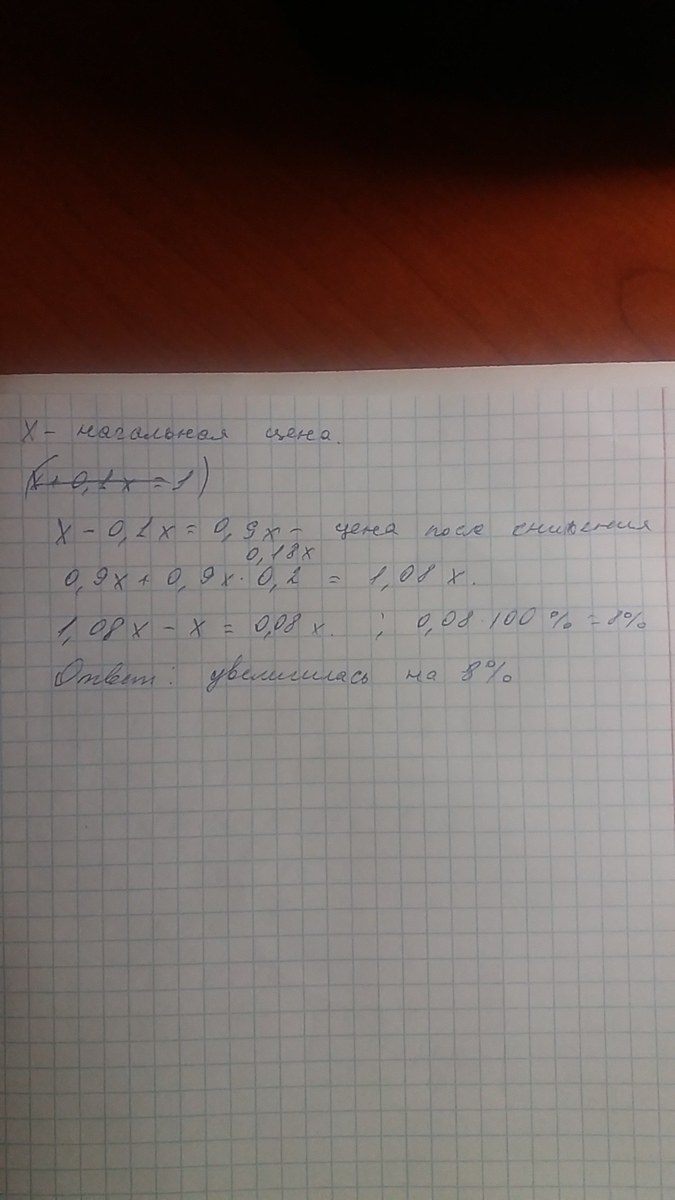 x - начальная цена.
(x + 0,1x = 1)
x - 0,1x = 0,9x - цена после снижения
0,18x
0,9x + 0,9x · 0,2 = 1,08x.
1,08x - x = 0,08x. ; 0,08 · 100% = 8%
Ответ: увеличилась на 8%